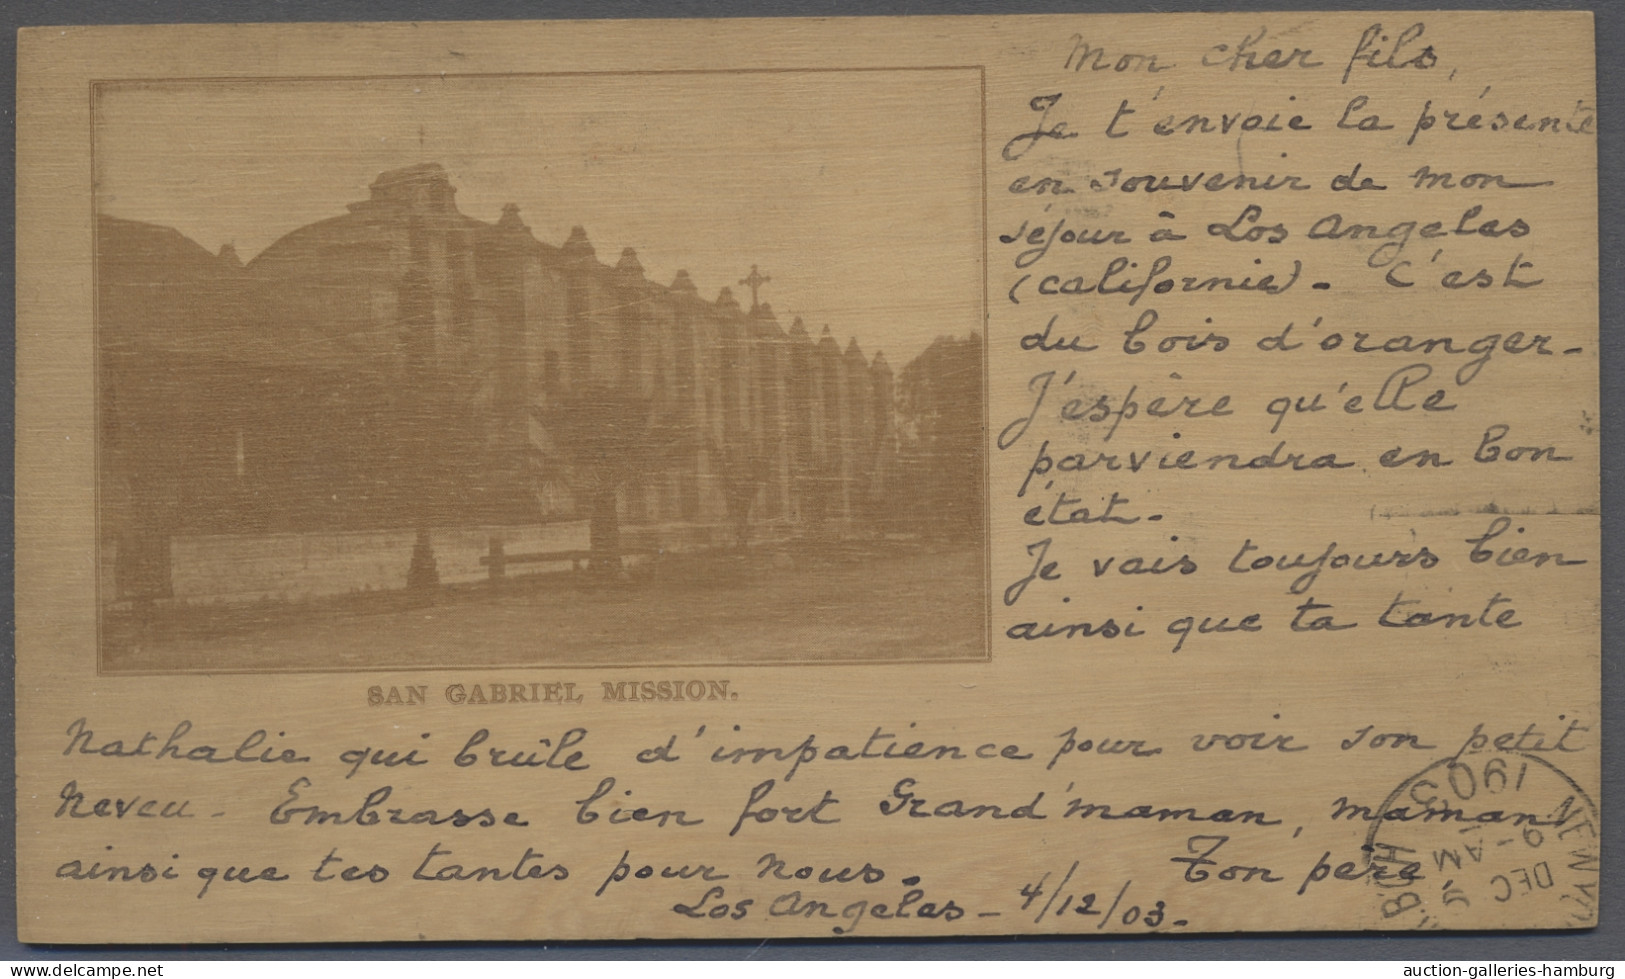 Mon cher fils,
Je t'envoie la présente
en souvenir de mon
séjour à Los Angeles
(Californie). C'est
du bois d'oranger.
J'espère qu'elle
parviendra en bon
état.
Je vais toujours bien
ainsi que ta tante
SAN GABRIEL MISSION.
Nathalie qui brûle d'impatience pour voir son petit
Neveu. Embrasse bien fort Grand'maman, maman
ainsi que tes tantes pour nous. Ton père,
Los Angeles - 4/12/03.
NEW Y
DEC
9-AM
1903
auction-galleries-hamburg